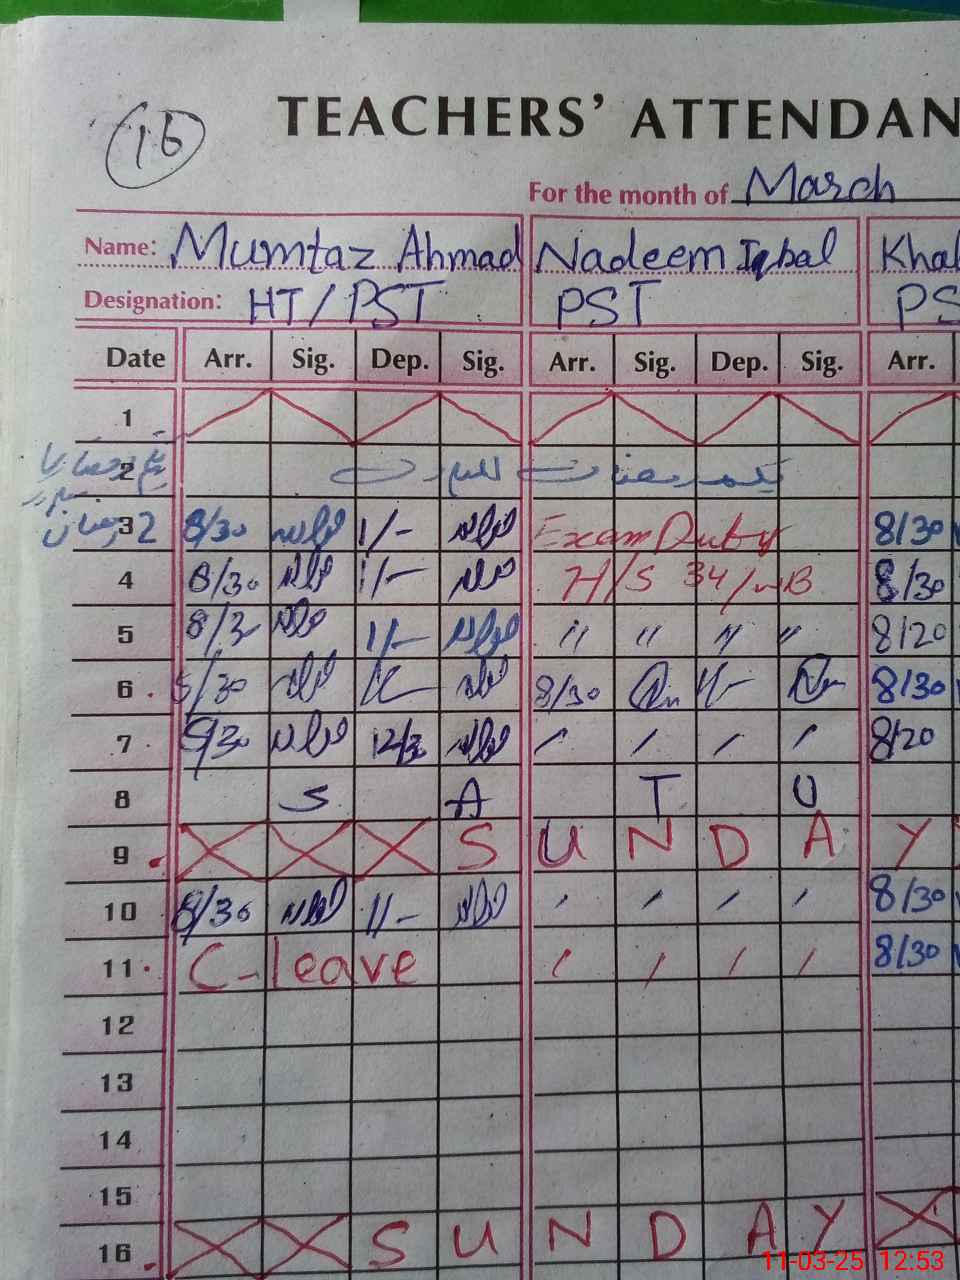 16
TEACHERS' ATTENDAN
For the month of March
Name: Mumtaz Ahmad Nadeem Iqbal Khal
Designation: HT/PST PST PS
Date Arr. Sig. Dep. Sig. Arr. Sig. Dep. Sig. Arr.
1
2 یکم رمضان المبارک
3 2 رمضان 8/30 1/- Exam Duty 8/30
4 8/30 1/- H/S 34/ 8/30
5 8/3 1/- " " " " 8/20
6 8/30 8/30 1/- 8/30
7 12/3 / / / / 8/20
8 S A T U
9 S U N D A Y
10 8/30 1/- / / / / 8/30
11 C-leave / / / / 8/30
12
13
14
15
16 S U N D A Y
11-03-25 12:53